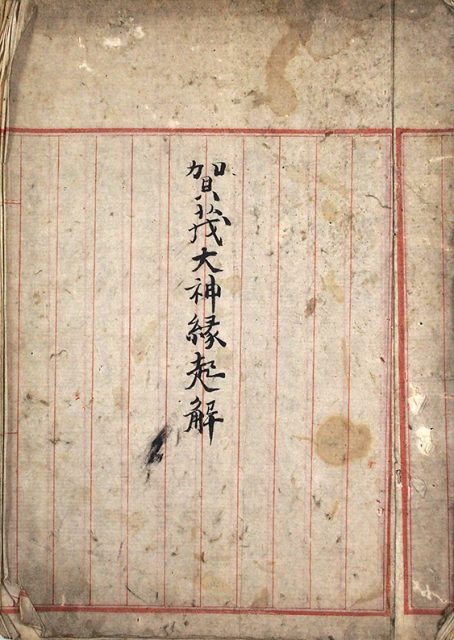 賀茂大神縁起解